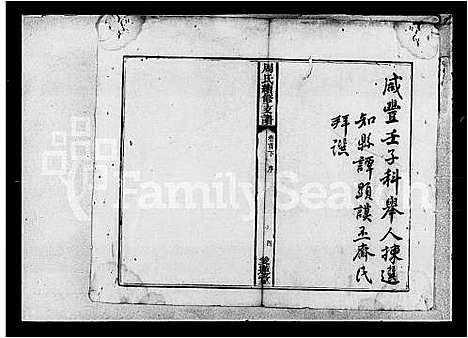 咸豐壬子科舉人揀選
知縣譚顯謨丕齋氏
拜譔
周氏續修支譜
卷首下 序
FamilySearch